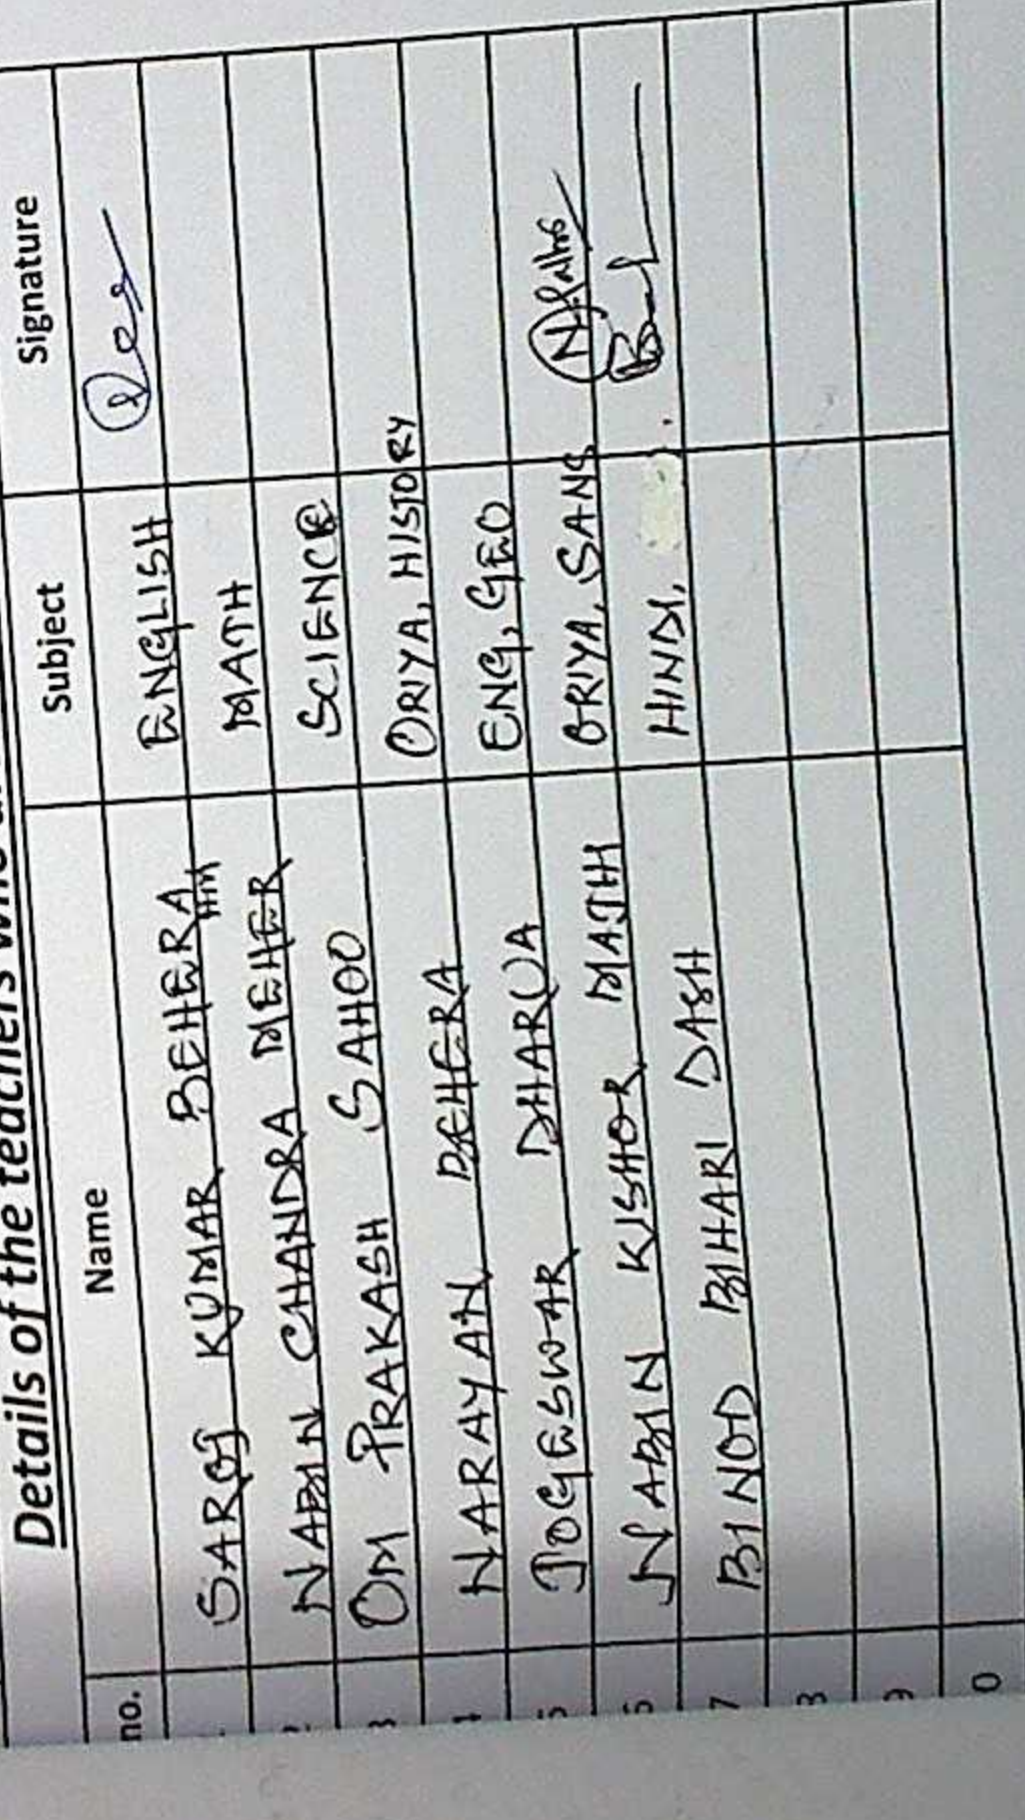 Details of the teachers who
no. Name Subject Signature
SAROJ KUMAR BEHERA HM ENGLISH
2 NABIN CHANDRA MEHER MATH
3 OM PRAKASH SAHOO SCIENCE
4 NARAYAN BEHERA ORIYA, HISTORY
5 JOGESWAR DHARUA ENG, GEO
6 NABIN KISHOR MAJHI ORIYA, SANS
7 BINOD BIHARI DASH HINDI,
8
9
0